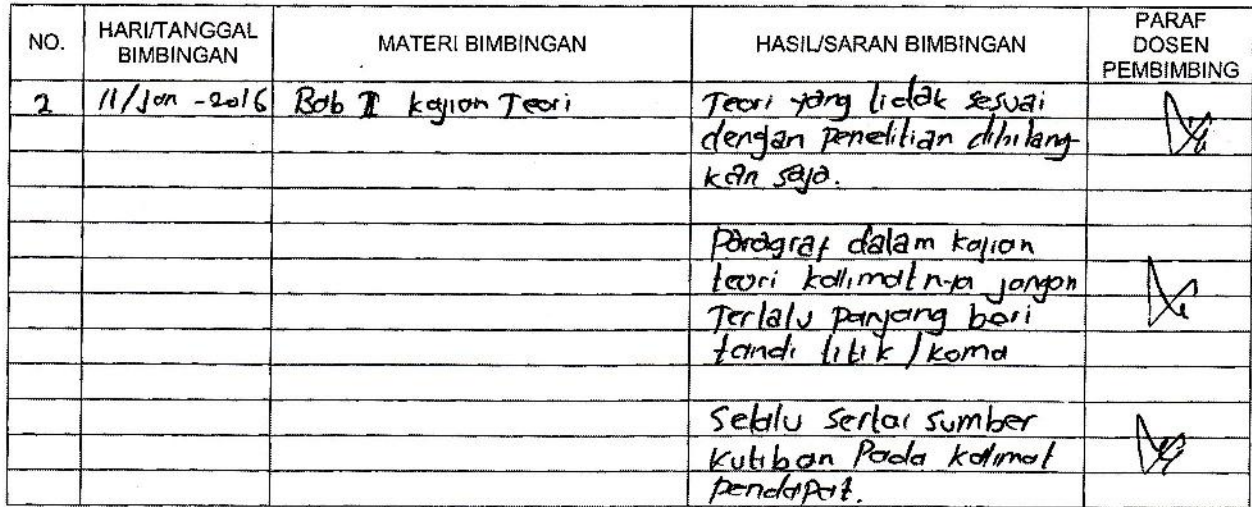 NO. HARI/TANGGAL BIMBINGAN MATERI BIMBINGAN HASIL/SARAN BIMBINGAN PARAF DOSEN PEMBIMBING
2 11/Jan-2016 Bab II kajian Teori Teori yang tidak sesuai
dengan penelitian dihilang-
kan saja.
Paragraf dalam kajian
teori kalimatnya jangan
Terlalu panjang beri
tandi titik/koma
Selalu sertai sumber
Kutiban Pada kalimat
pendapat.